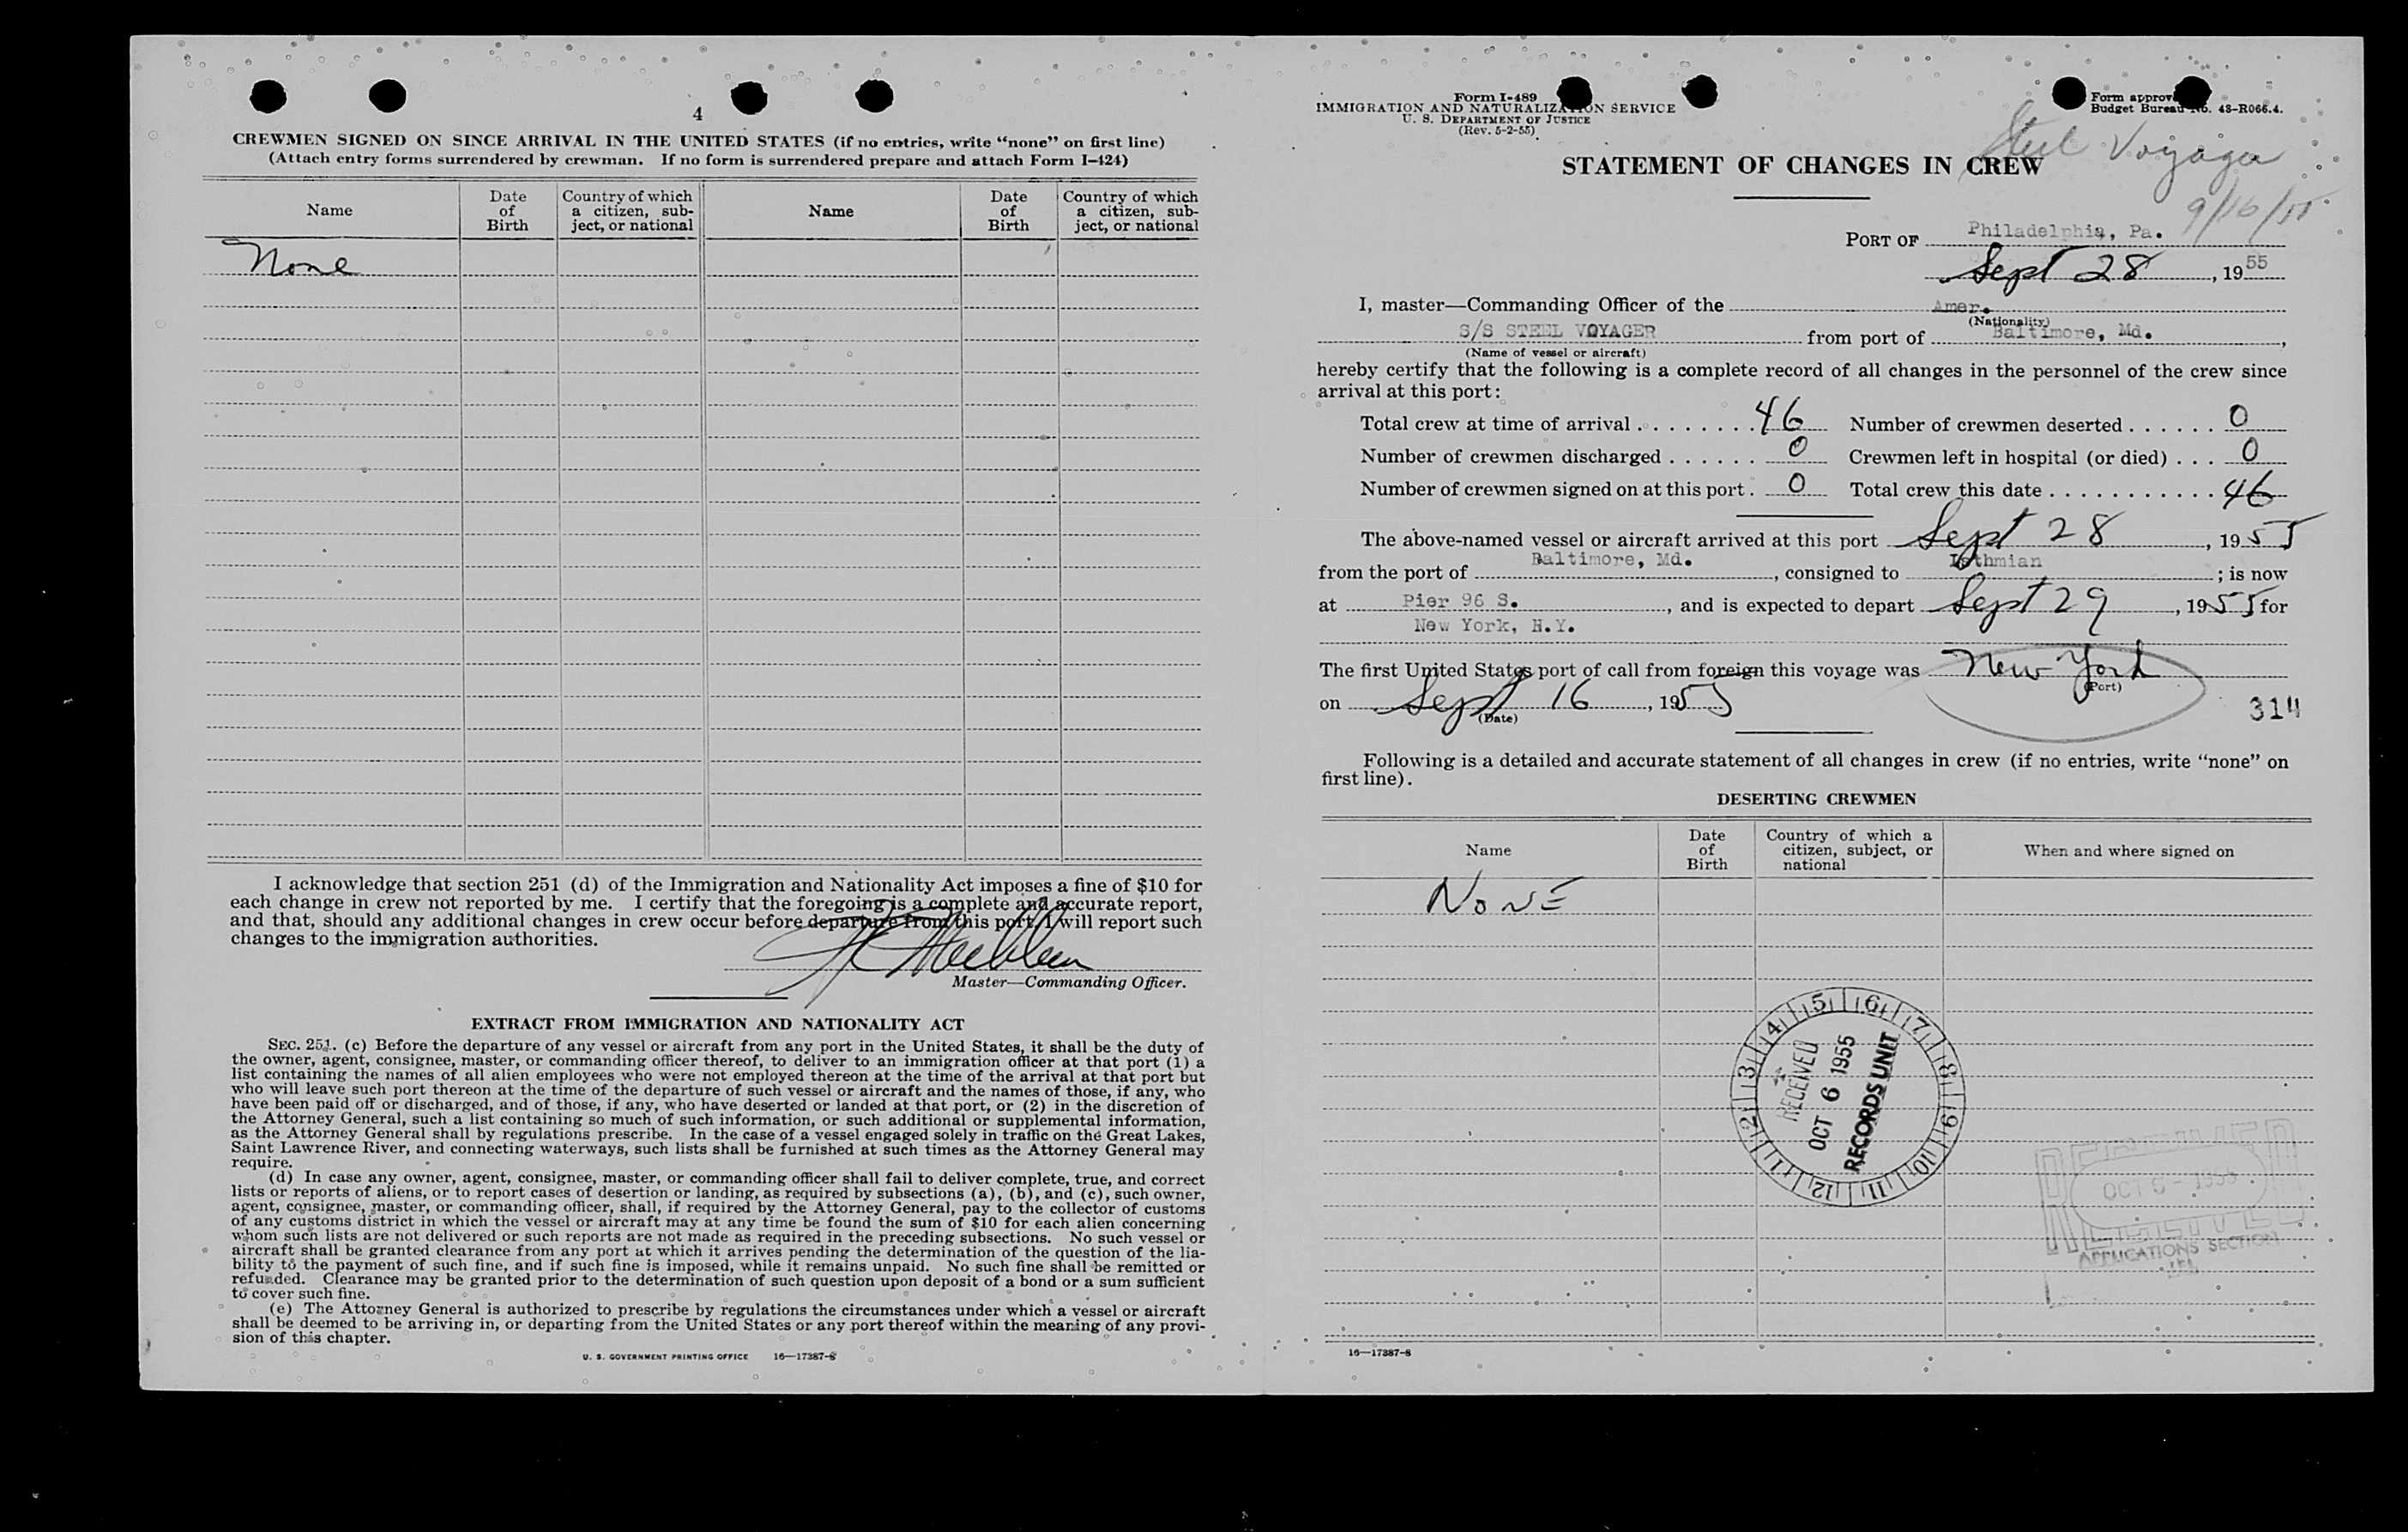 4
CREWMEN SIGNED ON SINCE ARRIVAL IN THE UNITED STATES (if no entries, write “none” on first line)
(Attach entry forms surrendered by crewman. If no form is surrendered prepare and attach Form I–424)
Name Date of Birth Country of which a citizen, subject, or national Name Date of Birth Country of which a citizen, subject, or national
None
I acknowledge that section 251 (d) of the Immigration and Nationality Act imposes a fine of $10 for
each change in crew not reported by me. I certify that the foregoing is a complete and accurate report,
and that, should any additional changes in crew occur before departure from this port, I will report such
changes to the immigration authorities.
Master—Commanding Officer.
EXTRACT FROM IMMIGRATION AND NATIONALITY ACT
SEC. 251. (c) Before the departure of any vessel or aircraft from any port in the United States, it shall be the duty of
the owner, agent, consignee, master, or commanding officer thereof, to deliver to an immigration officer at that port (1) a
list containing the names of all alien employees who were not employed thereon at the time of the arrival at that port but
who will leave such port thereon at the time of the departure of such vessel or aircraft and the names of those, if any, who
have been paid off or discharged, and of those, if any, who have deserted or landed at that port, or (2) in the discretion of
the Attorney General, such a list containing so much of such information, or such additional or supplemental information,
as the Attorney General shall by regulations prescribe. In the case of a vessel engaged solely in traffic on the Great Lakes,
Saint Lawrence River, and connecting waterways, such lists shall be furnished at such times as the Attorney General may
require.
(d) In case any owner, agent, consignee, master, or commanding officer shall fail to deliver complete, true, and correct
lists or reports of aliens, or to report cases of desertion or landing, as required by subsections (a), (b), and (c), such owner,
agent, consignee, master, or commanding officer, shall, if required by the Attorney General, pay to the collector of customs
of any customs district in which the vessel or aircraft may at any time be found the sum of $10 for each alien concerning
whom such lists are not delivered or such reports are not made as required in the preceding subsections. No such vessel or
aircraft shall be granted clearance from any port at which it arrives pending the determination of the question of the lia-
bility to the payment of such fine, and if such fine is imposed, while it remains unpaid. No such fine shall be remitted or
refunded. Clearance may be granted prior to the determination of such question upon deposit of a bond or a sum sufficient
to cover such fine.
(e) The Attorney General is authorized to prescribe by regulations the circumstances under which a vessel or aircraft
shall be deemed to be arriving in, or departing from the United States or any port thereof within the meaning of any provi-
sion of this chapter.
U. S. GOVERNMENT PRINTING OFFICE 16—17387-8
Form I-489
IMMIGRATION AND NATURALIZATION SERVICE
U. S. DEPARTMENT OF JUSTICE
(Rev. 5-2-55)
Form approv
Budget Bureau No. 43-R066.4.
Steel Voyager
9/16/55
STATEMENT OF CHANGES IN CREW
PORT OF Philadelphia, Pa.
Sept 28, 1955
I, master—Commanding Officer of the Amer.
(Nationality)
S/S STEEL VOYAGER from port of Baltimore, Md.,
(Name of vessel or aircraft)
hereby certify that the following is a complete record of all changes in the personnel of the crew since
arrival at this port:
Total crew at time of arrival 46 Number of crewmen deserted 0
Number of crewmen discharged 0 Crewmen left in hospital (or died) 0
Number of crewmen signed on at this port 0 Total crew this date 46
The above-named vessel or aircraft arrived at this port Sept 28, 1955
from the port of Baltimore, Md., consigned to Isthmian; is now
at Pier 96 S., and is expected to depart Sept 29, 1955 for
New York, N.Y.
The first United States port of call from foreign this voyage was New York
(Port)
on Sept 16, 1955
(Date)
314
Following is a detailed and accurate statement of all changes in crew (if no entries, write “none” on
first line).
DESERTING CREWMEN
Name Date of Birth Country of which a citizen, subject, or national When and where signed on
NONE
1 2 3 4 5 6 7 8 9 10 11 12
RECEIVED
OCT 6 1955
RECORDS UNIT
RECEIVED
OCT 5 - 1955
APPLICATIONS SECTION
16—17387-8